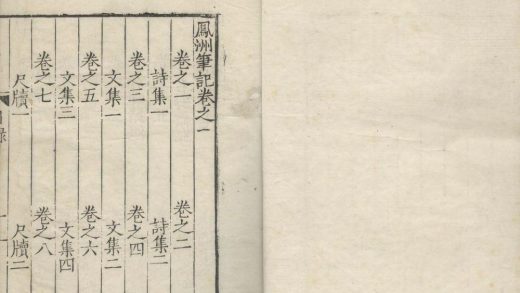 鳳洲筆記卷之一
卷之一 卷之二
詩集一 詩集二
卷之三 卷之四
文集一 文集二
卷之五 卷之六
文集三 文集四
卷之七 卷之八
尺牘一 尺牘二
目錄